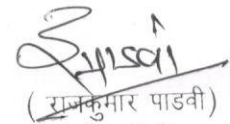 ( राजकुमार पाडवी )